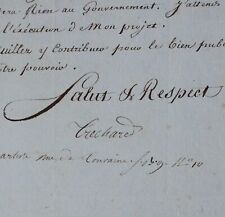 Rien au Gouvernement. J'attens
l'exécution d'Mon projet.
y Contribuer pour le bien pub
pouvoir.
Salut & Respect
Trechard
rue de Touraine N.o 10